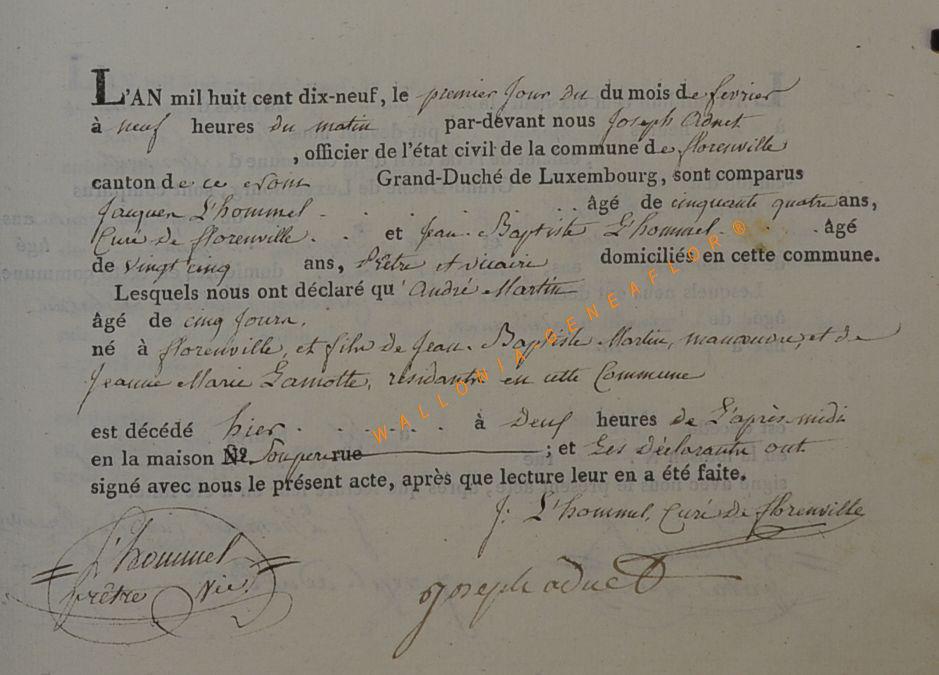 L'AN mil huit cent dix-neuf, le premier jour du du mois de fevrier
à neuf heures du matin par-devant nous Joseph Adnet
, officier de l'état civil de la commune de florenville
canton de ce nom Grand-Duché de Luxembourg, sont comparus
Jacques L'hommel . . . . . . âgé de cinquante quatre ans,
Curé de florenville . . et Jean-Baptiste L'hommel . . . âgé
de vingt cinq ans, Prêtre et vicaire domiciliés en cette commune.
Lesquels nous ont déclaré qu'André Martin
âgé de cinq jours,
né à florenville, et fils de Jean-Baptiste Martin, manœuvre, et de
Jeanne Marie Lamotte, résidants en cette Commune
est décédé hier . . . . . à deux heures de L'après-midi
en la maison N.º rue ; et Les déclarants ont
signé avec nous le présent acte, après que lecture leur en a été faite.
J. L'hommel, Curé de florenville
L'hommel
prêtre Vic.
Joseph adnet
WALLONIA GENEAFLOR ®